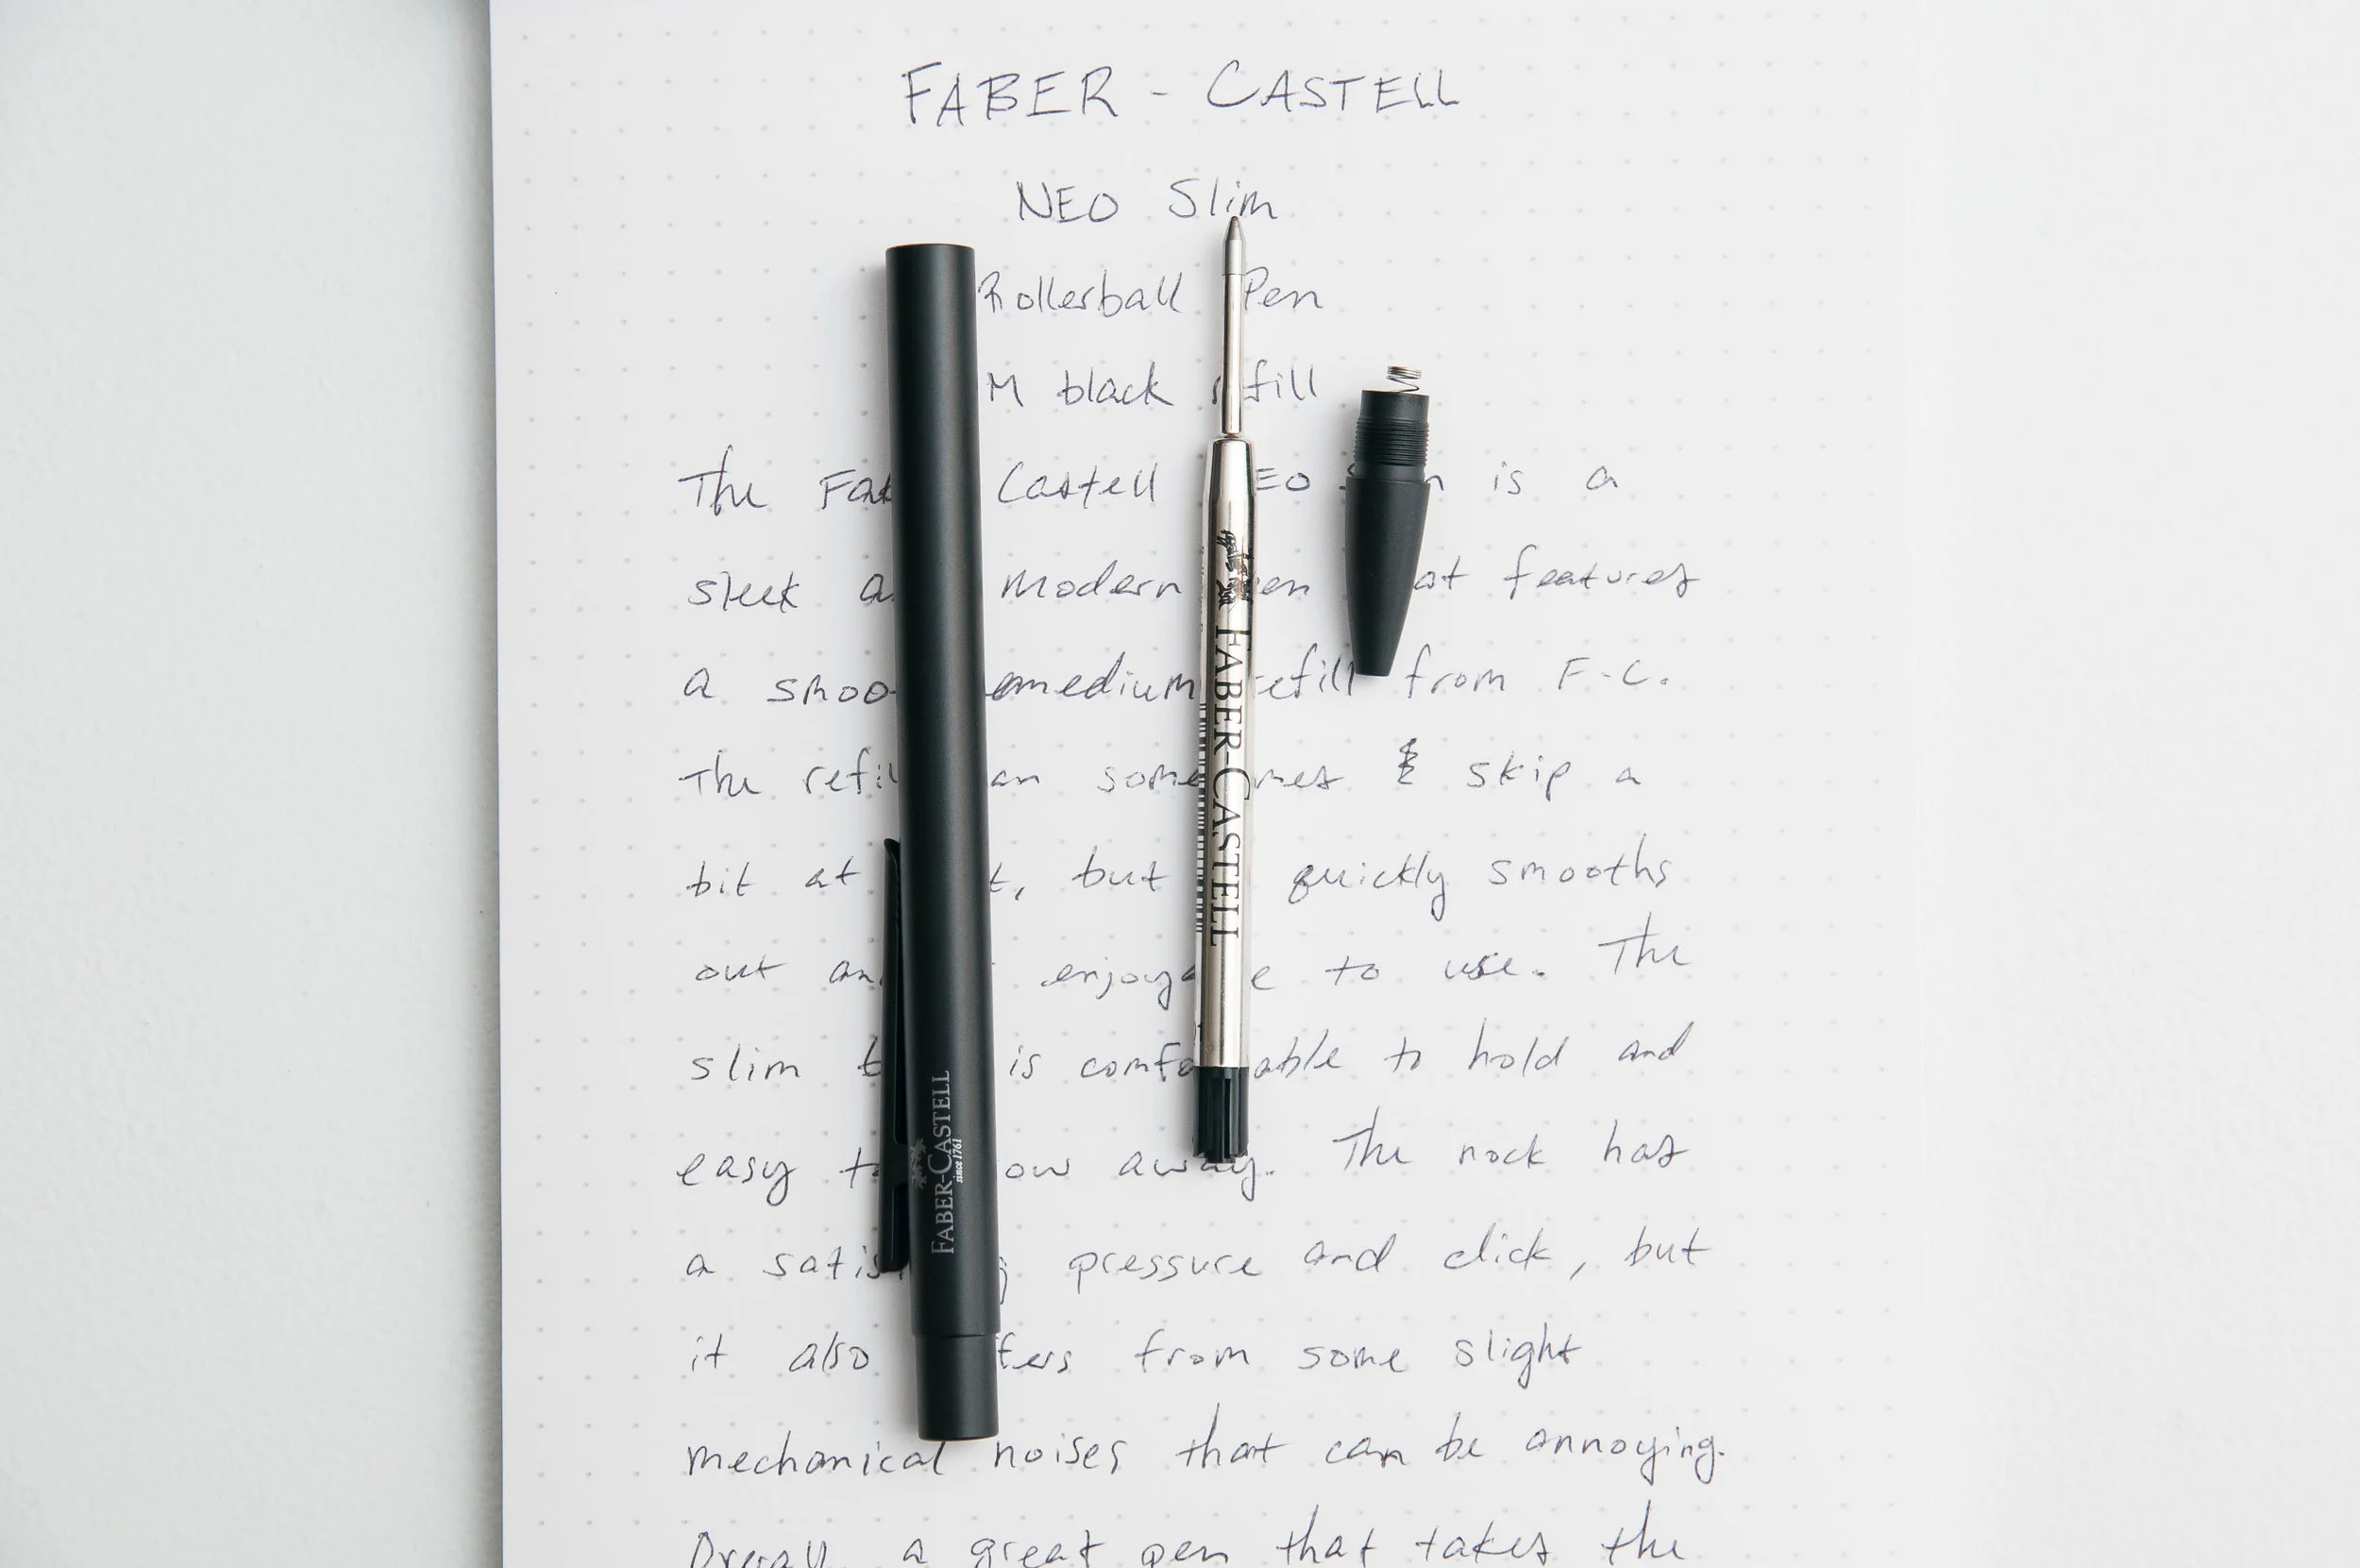 FABER - CASTELL
NEO Slim
Rollerball Pen
M black refill
The Fab Castell EO is a
sleek a modern en at features
a smoo medium refill from F-C.
The refi an some mes & skip a
bit at t, but quickly smooths
out an enjoya e to use. The
slim b is comfo able to hold and
easy to ow away. The nock has
a satis g pressure and click, but
it also fers from some slight
mechanical noises that can be annoying.
Overall, a great pen that takes the
FABER-CASTELL
since 1761
FABER-CASTELL